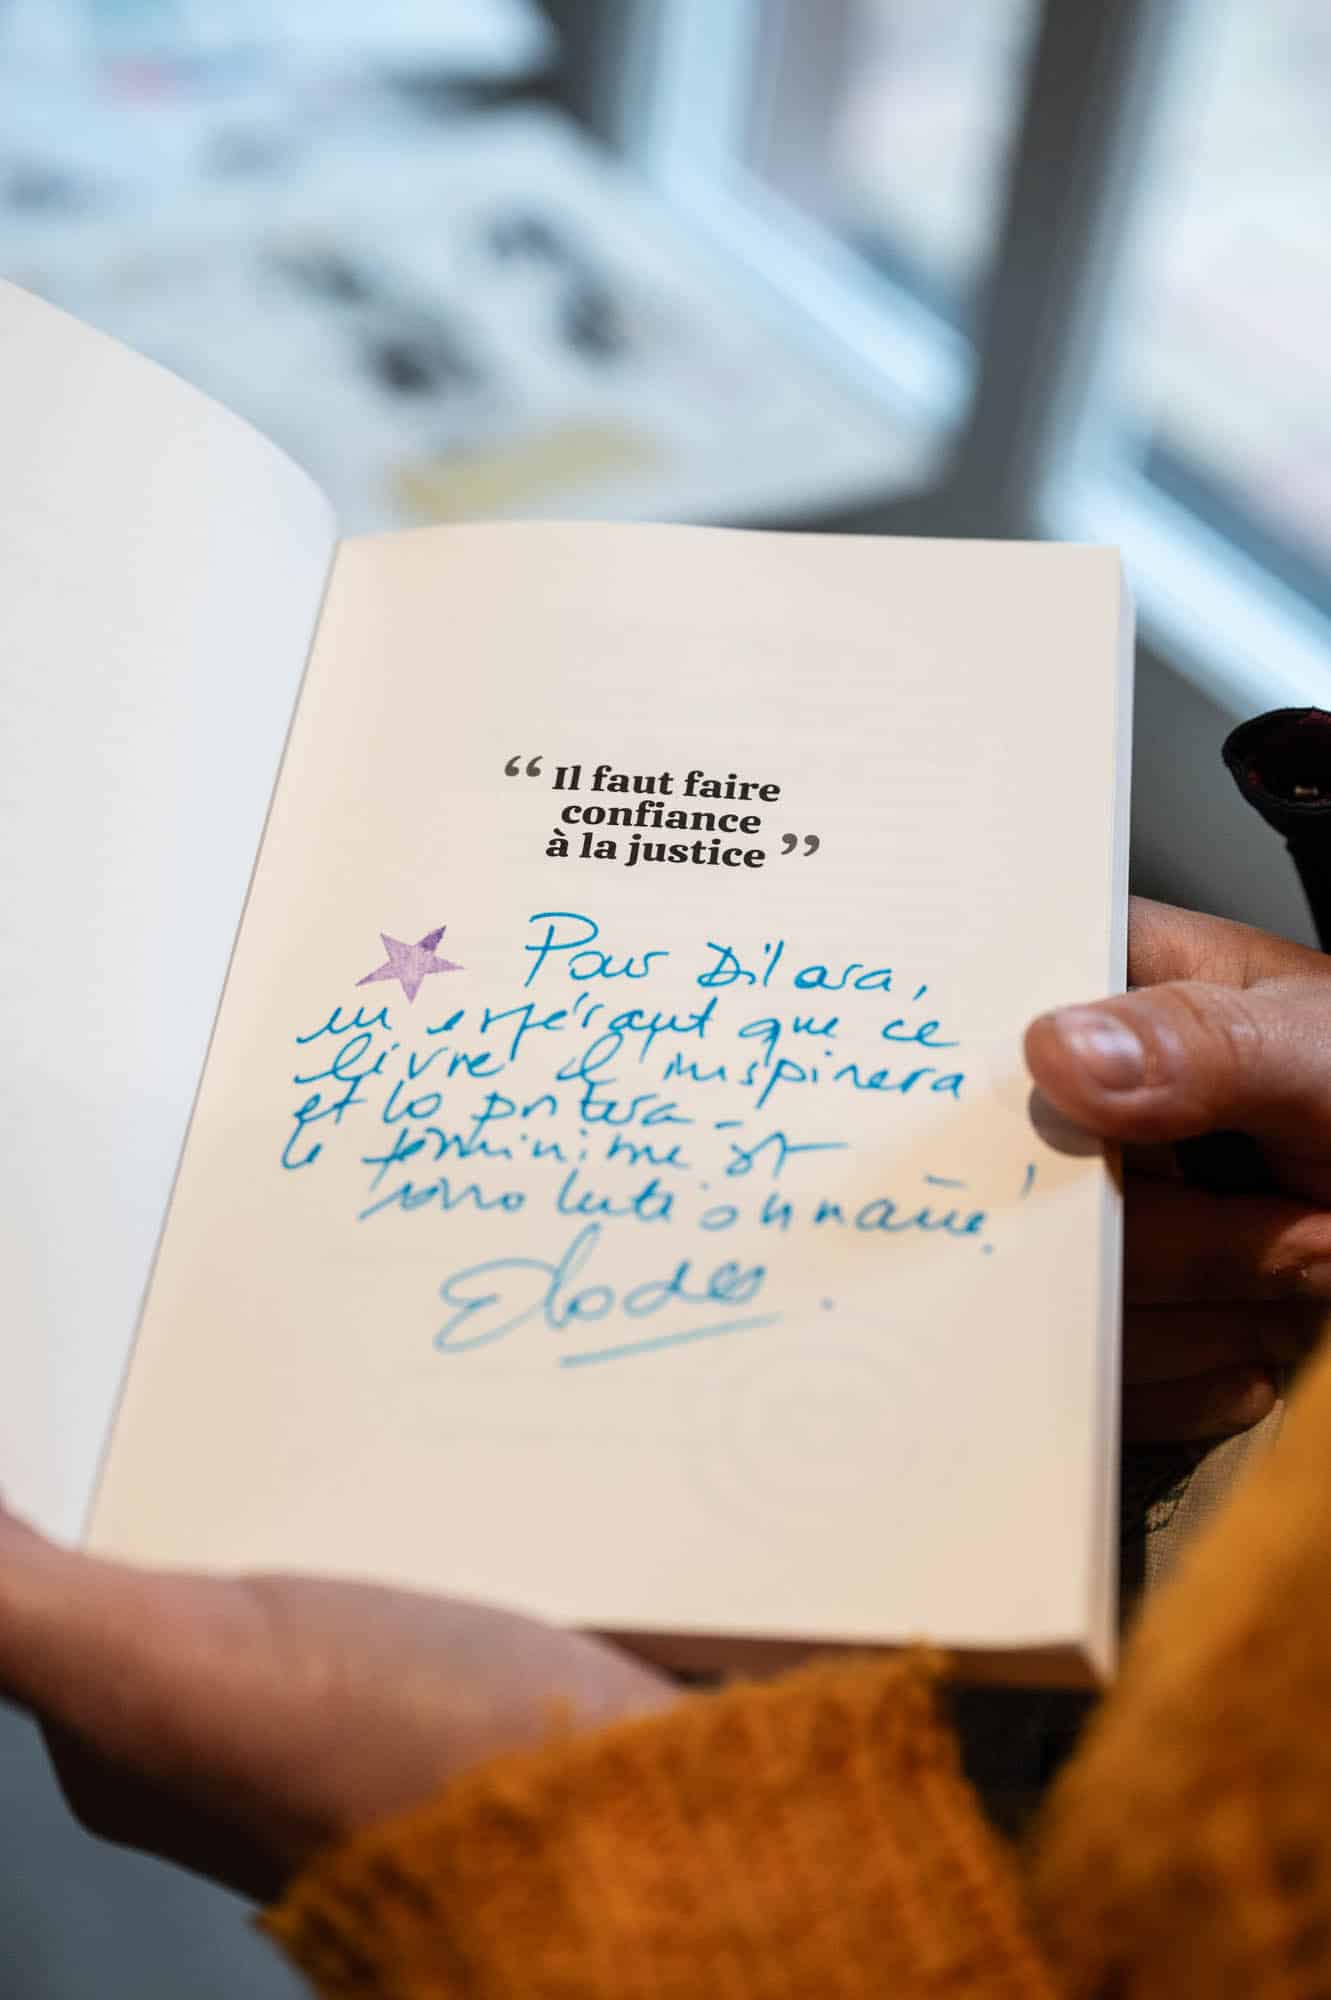 “ Il faut faire
confiance
à la justice ”
Pour Dilara,
en espérant que ce
livre t'inspirera
et te portera -
Le féminisme est
révolutionnaire !
Elodie